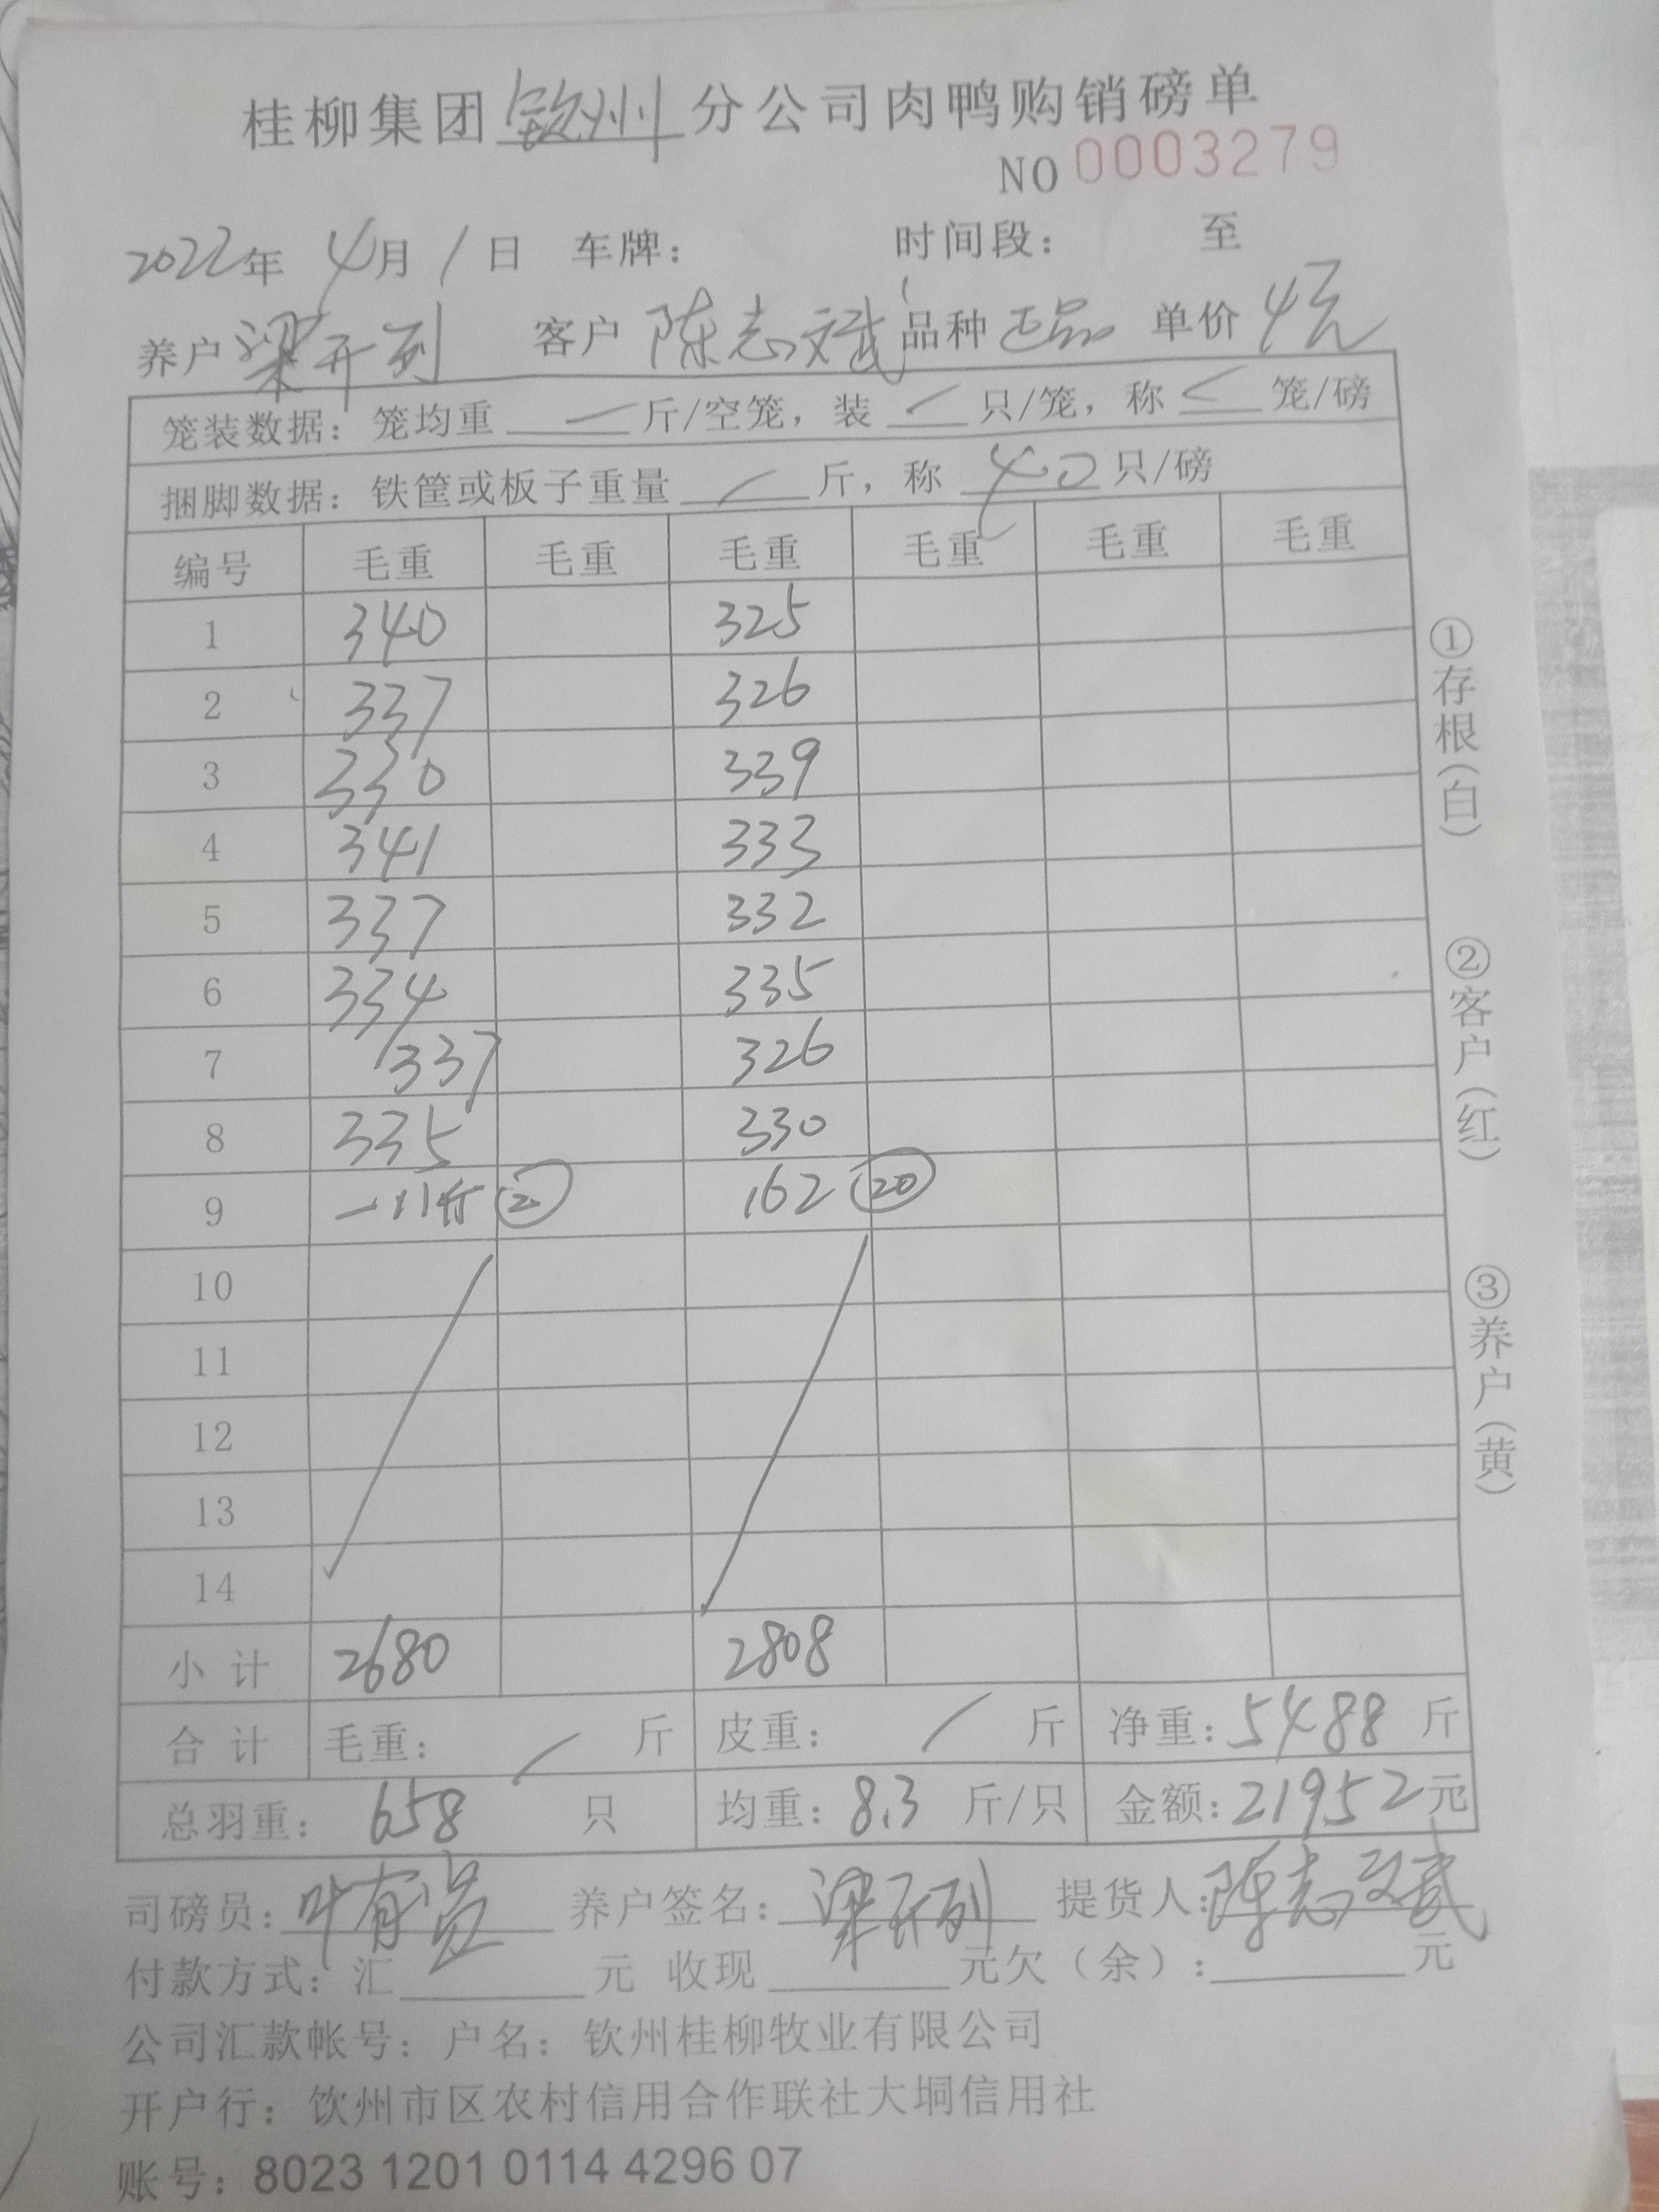 桂柳集团钦州分公司肉鸭购销磅单
NO 0003279
2022年 4月 1日 车牌: 时间段: 至
养户 梁开列 客户 陈志斌 品种 正品 单价 4元
笼装数据: 笼均重 斤/空笼, 装 只/笼, 称 笼/磅
捆脚数据: 铁筐或板子重量 斤, 称 40 只/磅
编号 毛重 毛重 毛重 毛重 毛重 毛重
1 340 325
2 337 326
3 330 339
4 341 333
5 337 332
6 334 335
7 337 326
8 335 330
9 -11斤 ② 162 ⑳
10
11
12
13
14
小计 2680 2808
合计 毛重: 斤 皮重: 斤 净重: 5488 斤
总羽重: 658 只 均重: 8.3 斤/只 金额: 21952元
司磅员: 叶有 养户签名: 梁开列 提货人: 陈志斌
付款方式: 汇 元 收现 元欠（余）: 元
公司汇款帐号: 户名: 钦州桂柳牧业有限公司
开户行: 钦州市区农村信用合作联社大垌信用社
账号: 8023 1201 0114 4296 07
①存根（白）
②客户（红）
③养户（黄）